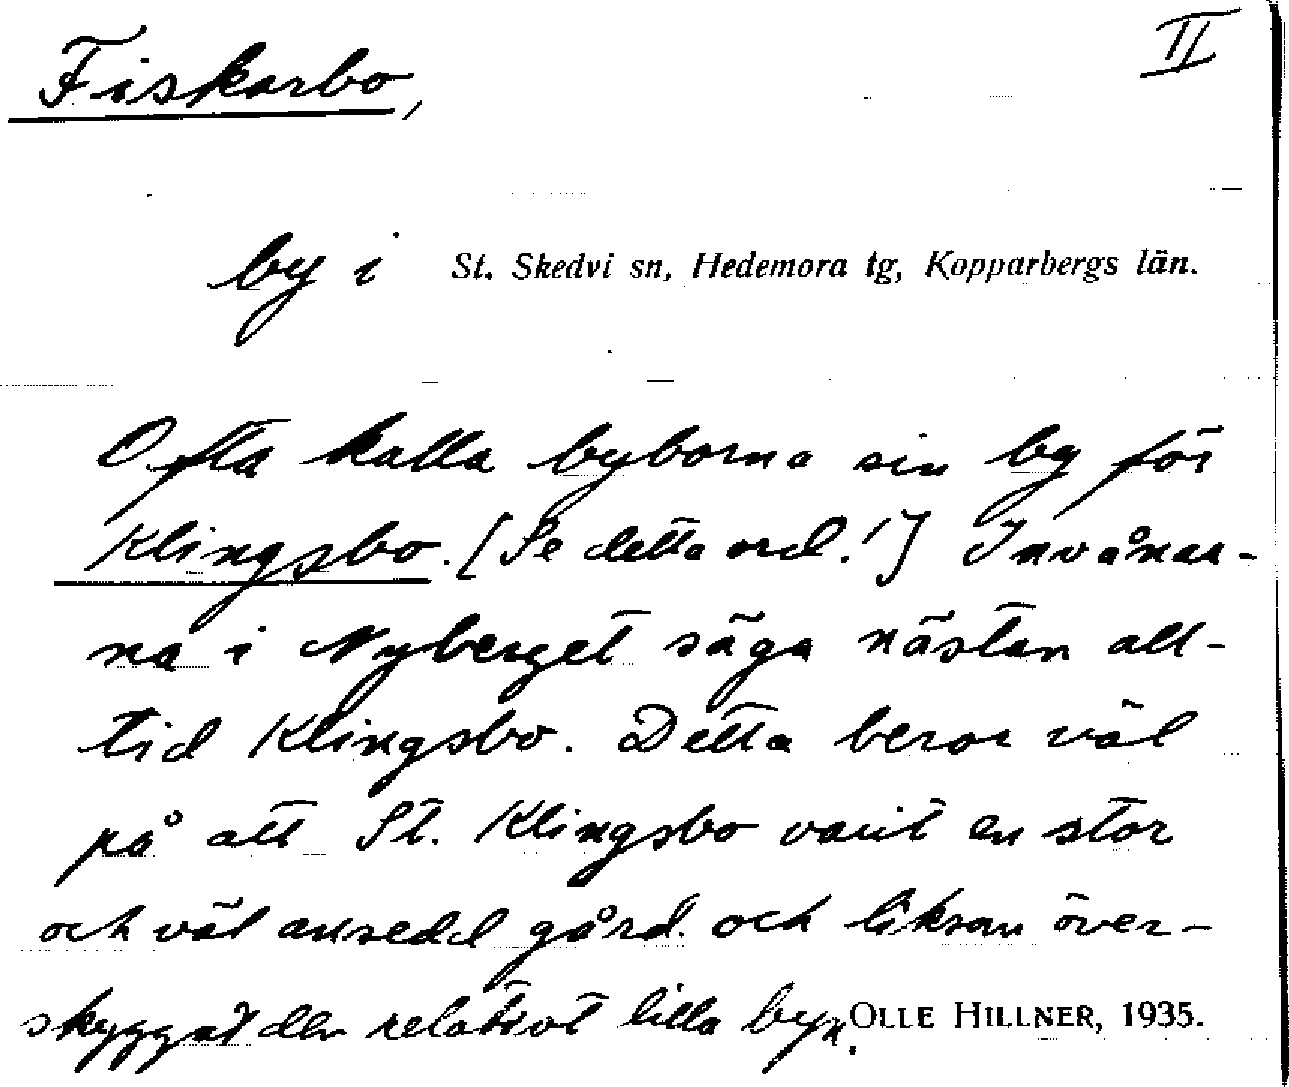 II
Fiskarbo,
by i St. Skedvi sn, Hedemora tg, Kopparbergs län.
Ofta kalla byborna sin by för
Klingsbo. [Se detta ord!] Invånar-
na i Nyberget säga nästan all-
tid Klingsbo. Detta beror väl
på att St. Klingsbo varit en stor
och väl ansedd gård och liksom över-
skyggat den relativt lilla byn.
OLLE HILLNER, 1935.